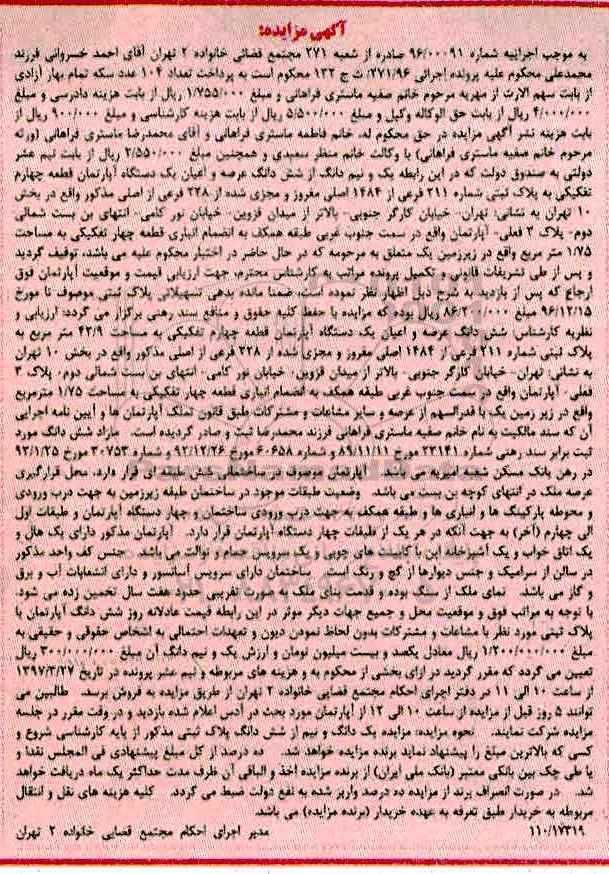 آگهی مزایده:
به موجب اجراییه شماره ۹۶/۰۰۰۹۱ صادره از شعبه ۲۷۱ مجتمع قضائی خانواده ۲ تهران آقای احمد خسروانی فرزند
محمدعلی محکوم علیه پرونده اجرائی ۲۷۱/۹۶/ث ج ۱۳۲ محکوم است به پرداخت تعداد ۱۰۴ عدد سکه تمام بهار آزادی
از بابت سهم الارث از مهریه مرحوم خانم صفیه ماستری فراهانی و مبلغ ۱/۷۵۵/۰۰۰ ریال از بابت هزینه دادرسی و مبلغ
۴/۰۰۰/۰۰۰ ریال از بابت حق الوکاله وکیل و مبلغ ۵/۵۰۰/۰۰۰ ریال از بابت هزینه کارشناسی و مبلغ ۹۰۰/۰۰۰ ریال از
بابت هزینه نشر آگهی مزایده در حق محکوم له، خانم فاطمه ماستری فراهانی و آقای محمدرضا ماستری فراهانی (ورثه
مرحوم خانم صفیه ماستری فراهانی) با وکالت خانم منظر سعیدی و همچنین مبلغ ۲/۵۵۰/۰۰۰ ریال از بابت نیم عشر
دولتی به صندوق دولت که در این رابطه یک و نیم دانگ از شش دانگ عرصه و اعیان یک دستگاه آپارتمان قطعه چهارم
تفکیکی به پلاک ثبتی شماره ۲۱۱ فرعی از ۱۴۸۴ اصلی مفروز و مجزی شده از ۲۲۸ فرعی از اصلی مذکور واقع در بخش
۱۰ تهران به نشانی: تهران- خیابان کارگر جنوبی- بالاتر از میدان قزوین- خیابان نور کامی- انتهای بن بست شمالی
دوم- پلاک ۳ فعلی- آپارتمان واقع در سمت جنوب غربی طبقه همکف به انضمام انباری قطعه چهار تفکیکی به مساحت
۱/۷۵ متر مربع واقع در زیرزمین یک متعلق به مرحومه که در حال حاضر در اختیار محکوم علیه می باشد، توقیف گردید
و پس از طی تشریفات قانونی و تکمیل پرونده مراتب به کارشناس محترم، جهت ارزیابی قیمت و موقعیت آپارتمان فوق
ارجاع که پس از بازدید به شرح ذیل اظهار نظر نموده است، ضمنا مانده بدهی تسهیلاتی پلاک ثبتی موصوف تا مورخ
۹۶/۱۲/۱۵ مبلغ ۸۶/۲۰۰/۰۰۰ ریال بوده که مزایده با حفظ کلیه حقوق و منافع سند رهنی برگزار می گردد: ارزیابی و
نظریه کارشناس: شش دانگ عرصه و اعیان یک دستگاه آپارتمان قطعه چهارم تفکیکی به مساحت ۴۳/۹ متر مربع به
پلاک ثبتی شماره ۲۱۱ فرعی از ۱۴۸۴ اصلی مفروز و مجزی شده از ۲۲۸ فرعی از اصلی مذکور واقع در بخش ۱۰ تهران
به نشانی: تهران- خیابان کارگر جنوبی- بالاتر از میدان قزوین- خیابان نور کامی- انتهای بن بست شمالی دوم- پلاک ۳
فعلی- آپارتمان واقع در سمت جنوب غربی طبقه همکف به انضمام انباری قطعه چهار تفکیکی به مساحت ۱/۷۵ مترمربع
واقع در زیر زمین یک با قدرالسهم از عرصه و سایر مشاعات و مشترکات طبق قانون تملک آپارتمان ها و آیین نامه اجرایی
آن که سند مالکیت به نام خانم صفیه ماستری فراهانی فرزند محمدرضا ثبت و صادر گردیده است. مازاد شش دانگ مورد
ثبت برابر سند رهنی شماره ۲۳۱۴۱ مورخ ۸۹/۱۱/۱۱ و شماره ۶۰۶۵۸ مورخ ۹۲/۱۲/۲۶ و شماره ۳۰۷۵۳ مورخ ۹۳/۱/۲۵
در رهن بانک مسکن شعبه امیریه می باشد. آپارتمان موصوف در ساختمانی شش طبقه ای قرار دارد، محل قرارگیری
عرصه ملک در انتهای کوچه بن بست می باشد. وضعیت طبقات موجود در ساختمان طبقه زیرزمین به جهت درب ورودی
و محوطه پارکینگ ها و انباری ها و طبقه همکف به جهت درب ورودی ساختمان و چهار دستگاه آپارتمان و طبقات اول
الی چهارم (آخر) به جهت آنکه در هر یک از طبقات چهار دستگاه آپارتمان قرار دارد. آپارتمان مذکور دارای یک هال و
یک اتاق خواب و یک آشپزخانه اپن با کابینت های چوبی و یک سرویس حمام و توالت می باشد. جنس کف واحد مذکور
در سالن از سرامیک و جنس دیوارها از گچ و رنگ است. ساختمان دارای سرویس آسانسور و دارای انشعابات آب و برق
و گاز می باشد. نمای ملک از سنگ بوده و قدمت بنای ملک به صورت تقریبی حدود هفت سال تخمین زده می شود.
با توجه به مراتب فوق و موقعیت محل و جمیع جهات دیگر موثر در این رابطه قیمت عادلانه روز شش دانگ آپارتمان با
پلاک ثبتی مورد نظر با مشاعات و مشترکات بدون لحاظ نمودن دیون و تعهدات احتمالی به اشخاص حقوقی و حقیقی به
مبلغ ۱/۲۰۰/۰۰۰/۰۰۰ ریال معادل یکصد و بیست میلیون تومان و ارزش یک و نیم دانگ آن مبلغ ۳۰۰/۰۰۰/۰۰۰ ریال
تعیین می گردد که مقرر گردید در ازای بخشی از محکوم به و هزینه های مربوطه و نیم عشر پرونده در تاریخ ۱۳۹۷/۳/۲۷
از ساعت ۱۰ الی ۱۱ در دفتر اجرای احکام مجتمع قضایی خانواده ۲ تهران از طریق مزایده به فروش برسد. طالبین می
توانند ۵ روز قبل از مزایده از ساعت ۱۰ الی ۱۲ از آپارتمان مورد بحث در آدرس اعلام شده بازدید و در وقت مقرر در جلسه
مزایده شرکت نمایند. نحوه مزایده: مزایده یک دانگ و نیم از شش دانگ پلاک ثبتی مذکور از پایه کارشناسی شروع و
کسی که بالاترین مبلغ را پیشنهاد نماید برنده مزایده خواهد شد. ده درصد از کل مبلغ پیشنهادی فی المجلس نقدا و
یا طی چک بین بانکی معتبر (بانک ملی ایران) از برنده مزایده اخذ و الباقی آن ظرف مدت حداکثر یک ماه دریافت خواهد
شد. در صورت انصراف برند از مزایده ده درصد واریز شده به نفع دولت ضبط می گردد. کلیه هزینه های نقل و انتقال
مربوطه به خریدار طبق تعرفه به عهده خریدار (برنده مزایده) می باشد.
۱۱۰/۱۷۳۱۹ مدیر اجرای احکام مجتمع قضایی خانواده ۲ تهران